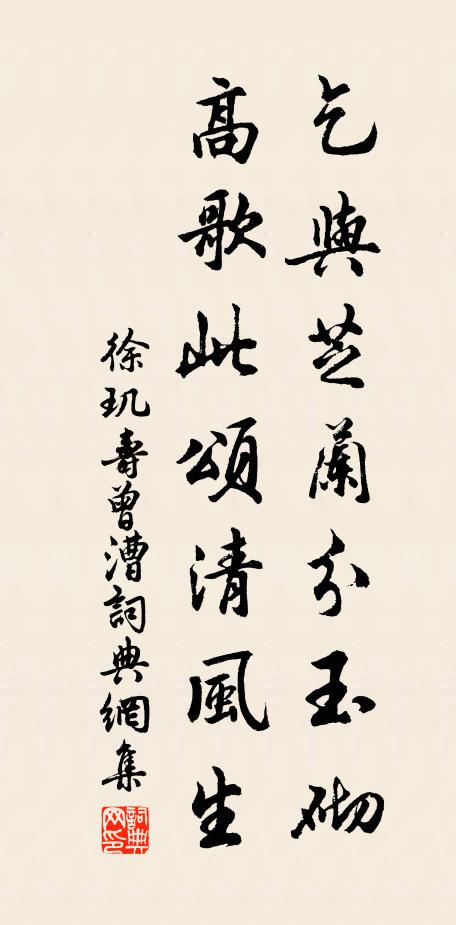 乞與芝蘭分玉砌
高歌此頌清風生
徐璣壽曾漕詞典網集
詞典网印